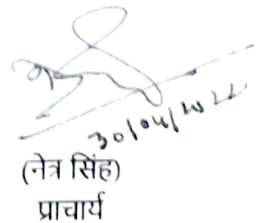 30/04/2022
(नेत्र सिंह)
प्राचार्य